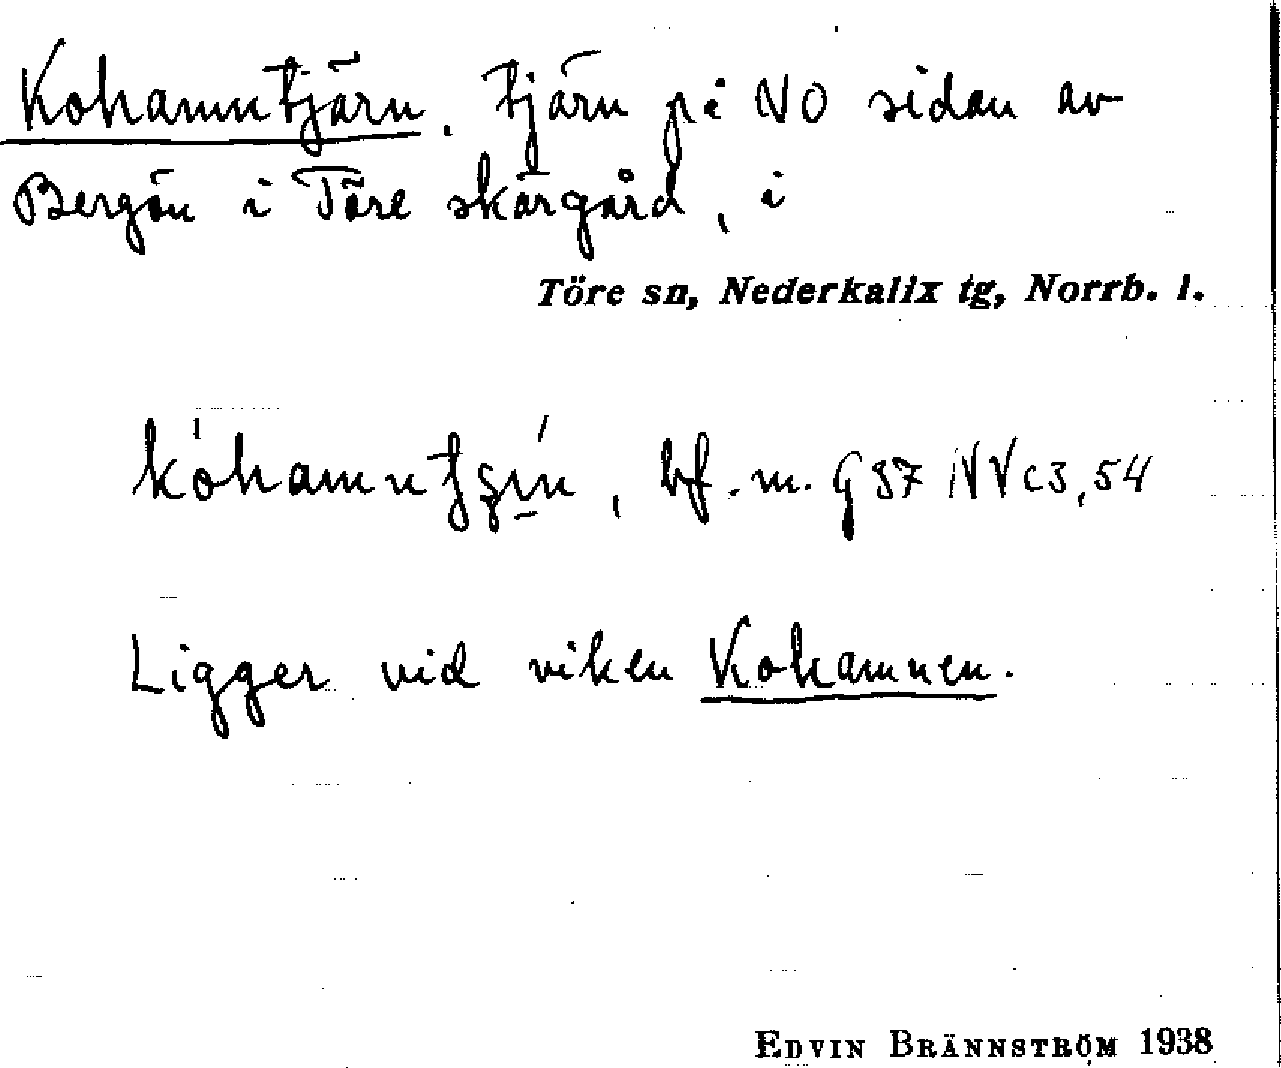 Kohamntjärn. Tjärn på NO sidan av
Bergön i Töre skärgård, i
Töre sn, Nederkalix tg, Norrb. l.
bf. m. G 37 NV c3, 54
Ligger vid viken Kohamnen.
EDVIN BRÄNNSTRÖM 1938